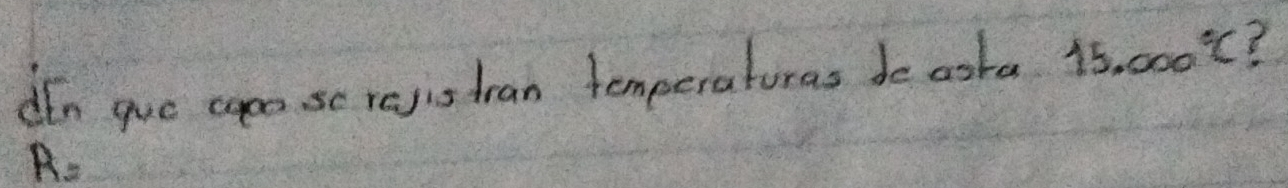 ¿En que capa se rejistran temperaturas de asta 15.000°C?
R=